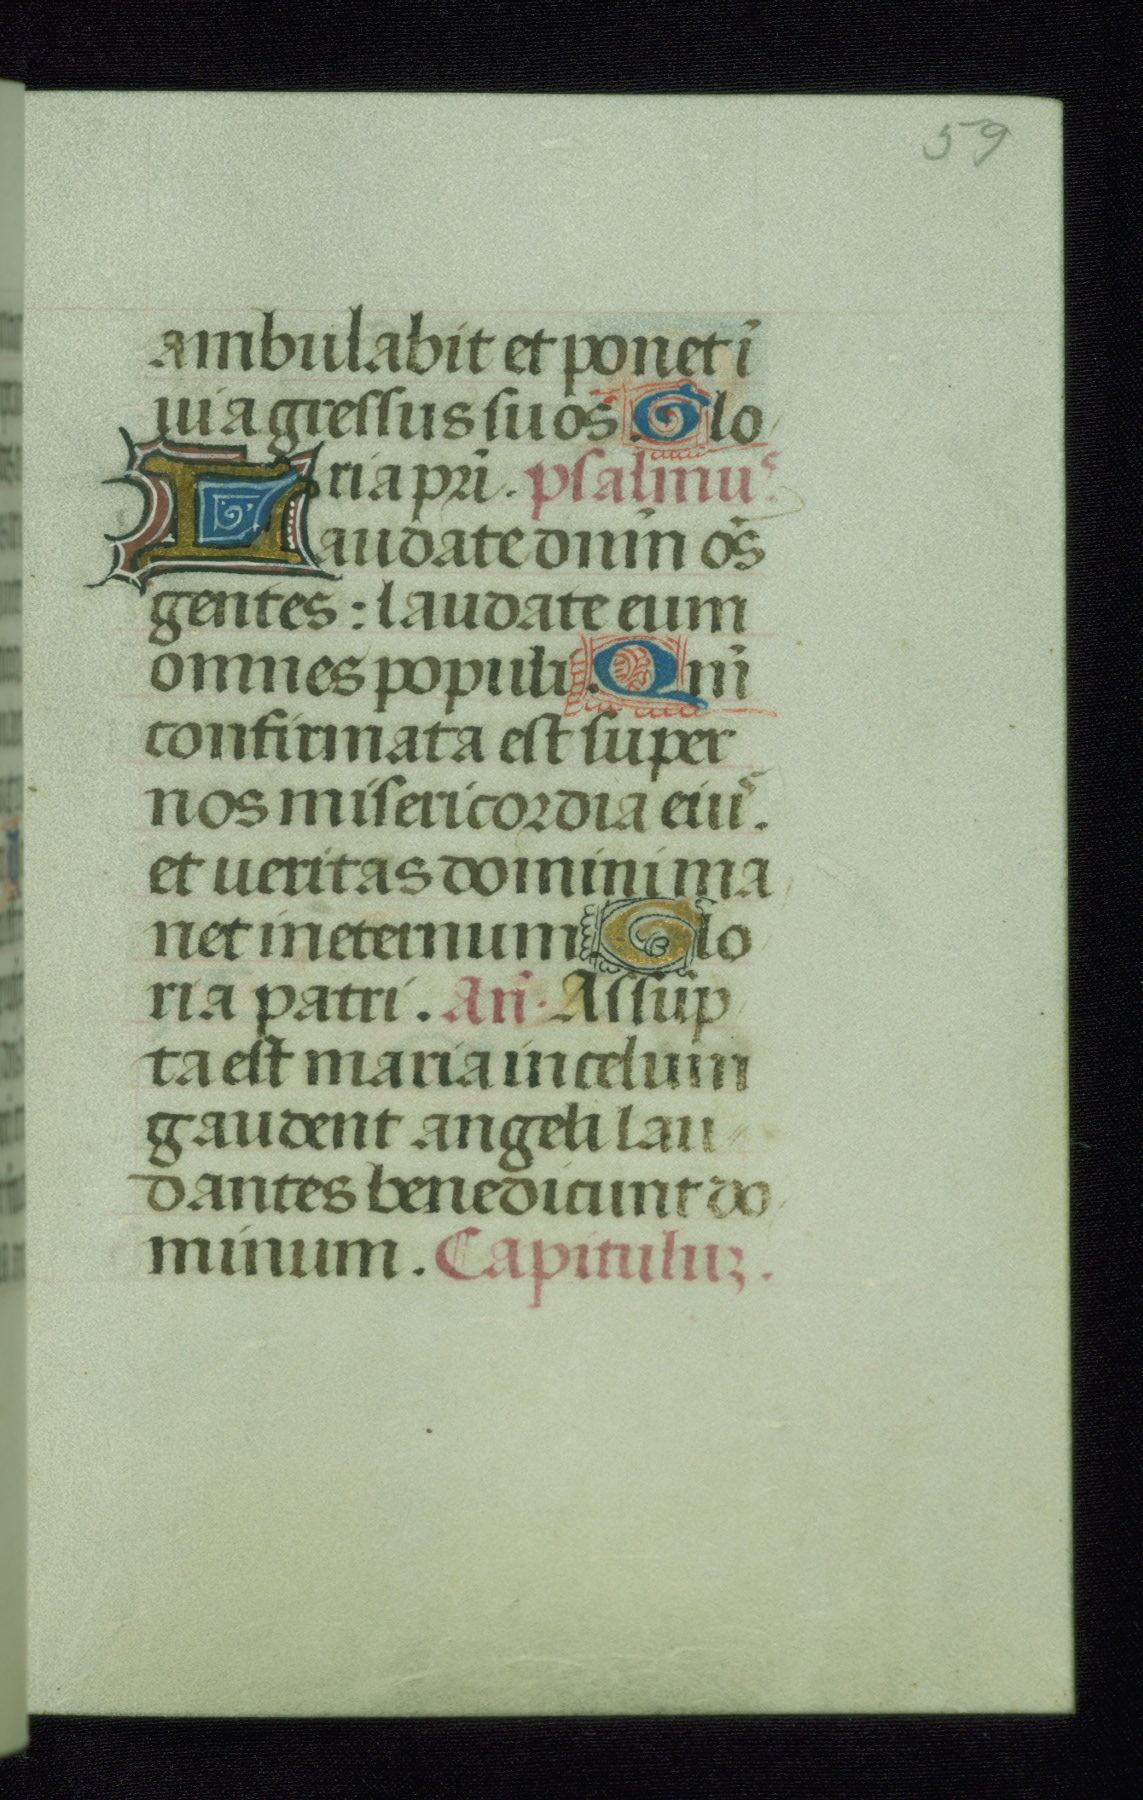 59
ambulabit et ponet ī
uia gressus suos. Glo
ria pr̄i. psalmuˢ.
Laudate dnīn os̄
gentes : laudate eum
omnes populi. Qnī
confirmata est super
nos misericordia eiuˢ.
et ueritas domini ma
net in eternum. Glo
ria patri. An̄. Assūp
ta est maria in celum
gaudent angeli lau
dantes benedicunt do
minum. Capituluꝫ.